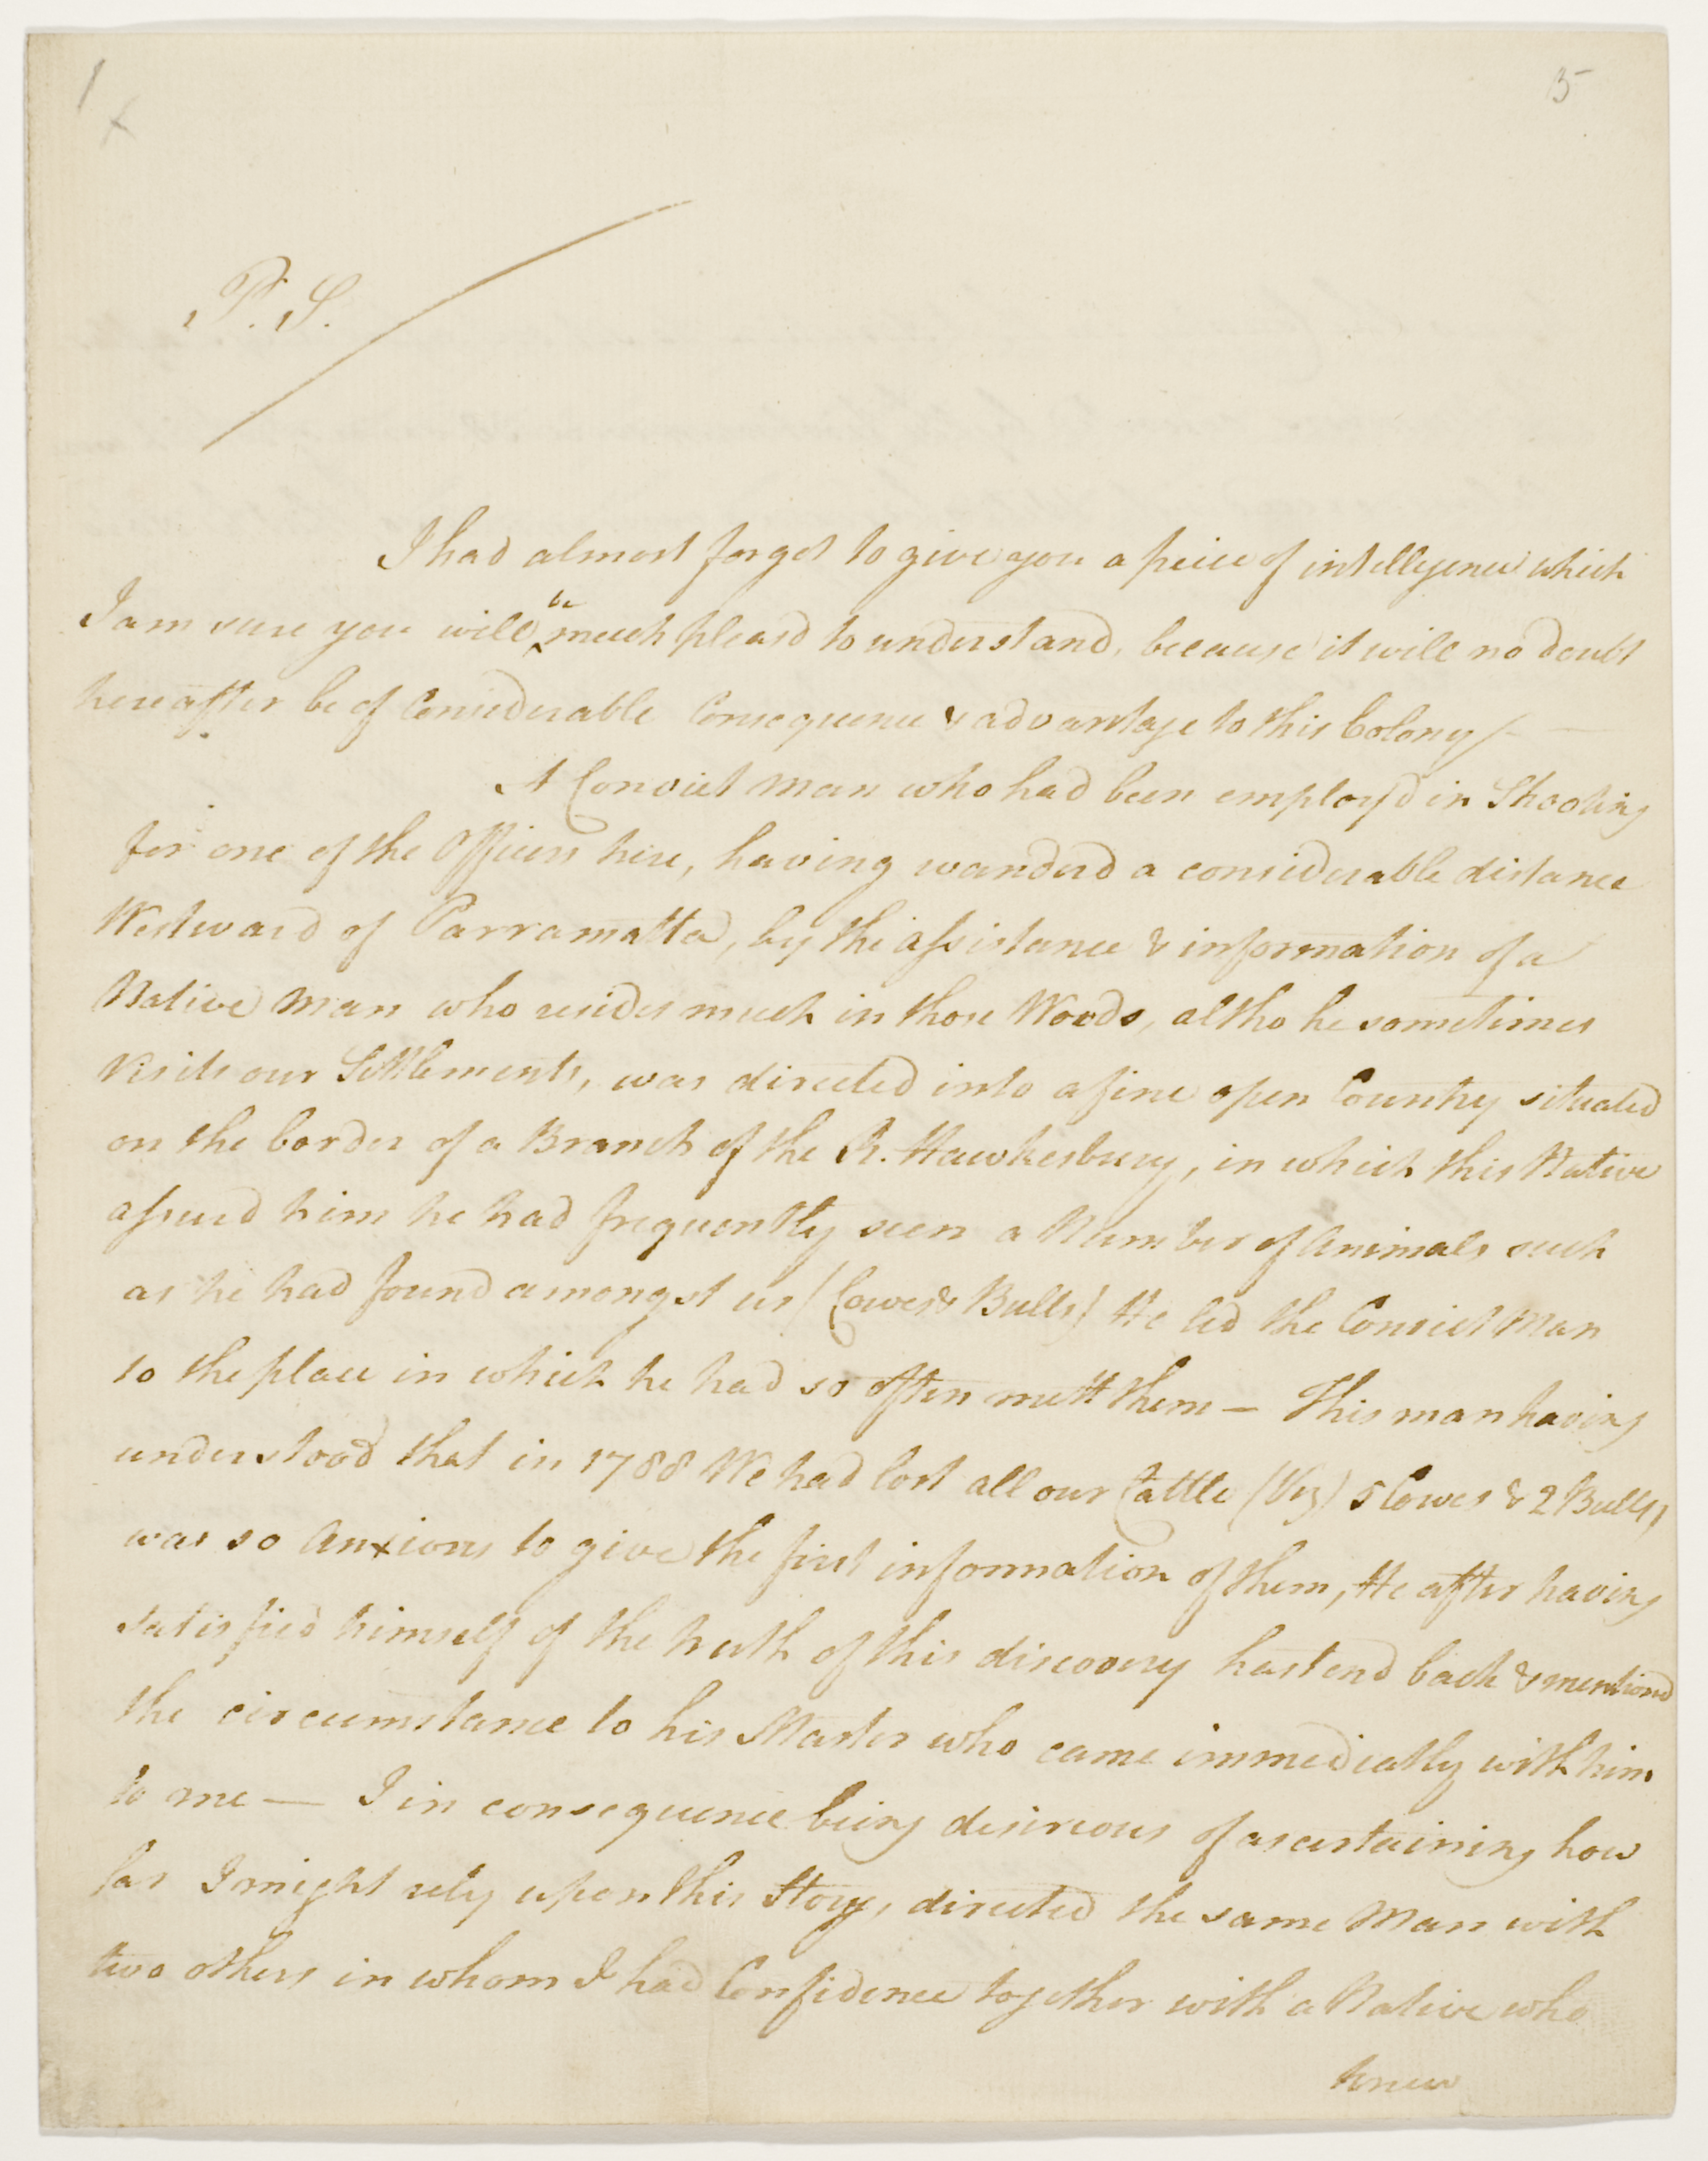 1
X
15
P. S.
I had almost forgot to give you a peice of intellegence which
I am sure you will be much pleasd to understand, because it will no doubt
hereafter be of Considerable Consequence & advantage to this Colony / —
A Convict man who had been employ'd in Shooting
for one of the Officers here, having wanderd a considerable distance
Westward of Parramatta, by the assistance & information of a
Native man who resides much in those Woods, altho he sometimes
visits our Settlements, was directed into a fine open Country situated
on the border of a Branch of the R. Hawkesbury, in which this Native
assurd him he had frequently seen a Number of Animals such
as he had found amongst us (Cowes & Bulls) He led the Convict Man
to the place in which he had so often mett them — This man having
understood that in 1788 We had lost all our Cattle (Viz) 5 Cowes & 2 Bulls,
was so Anxious to give the first information of them, He after having
satisfied himself of the truth of this discovery hastend back & mentiond
the circumstance to his Master who came immediatly with him
to me — I in consequence being desireous of ascertaining how
far I might rely upon this Story, directed the same Man with
two others in whom I had Confidence together with a Native who
knew